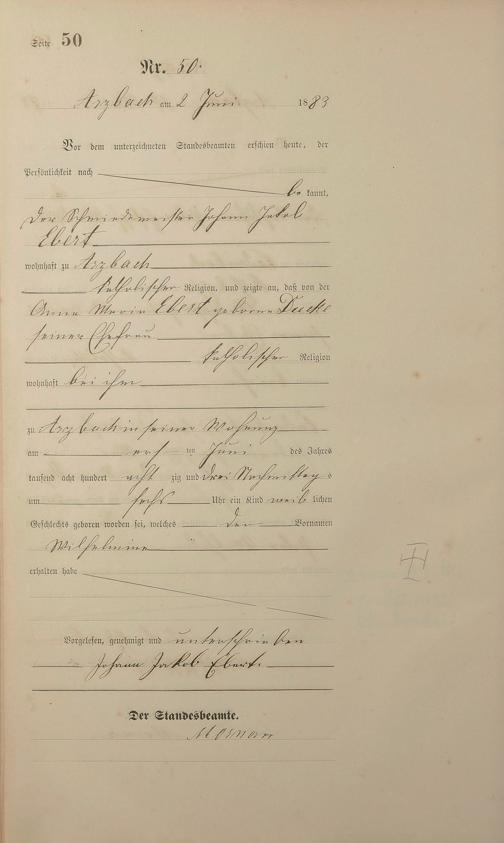 Seite 50
Nr. 50.
Arzbach am 2 Juni 1883
Vor dem unterzeichneten Standesbeamten erschien heute, der
Persönlichkeit nach
be kannt,
der Schmiedemeister Johann Jakob
Ebert
wohnhaft zu Arzbach
katholischer Religion, und zeigte an, daß von der
Anna Maria Ebert geborne
seiner Ehefrau
katholischer Religion
wohnhaft bei ihm
zu Arzbach in seiner Wohnung
am ersten Juni des Jahres
tausend acht hundert acht zig und drei Nachmittags
um sechs Uhr ein Kind weib lichen
Geschlechts geboren worden sei, welches den Vornamen
Wilhelmine
erhalten habe
Vorgelesen, genehmigt und unterschrieben
Johann Jakob Ebert.
Der Standesbeamte.